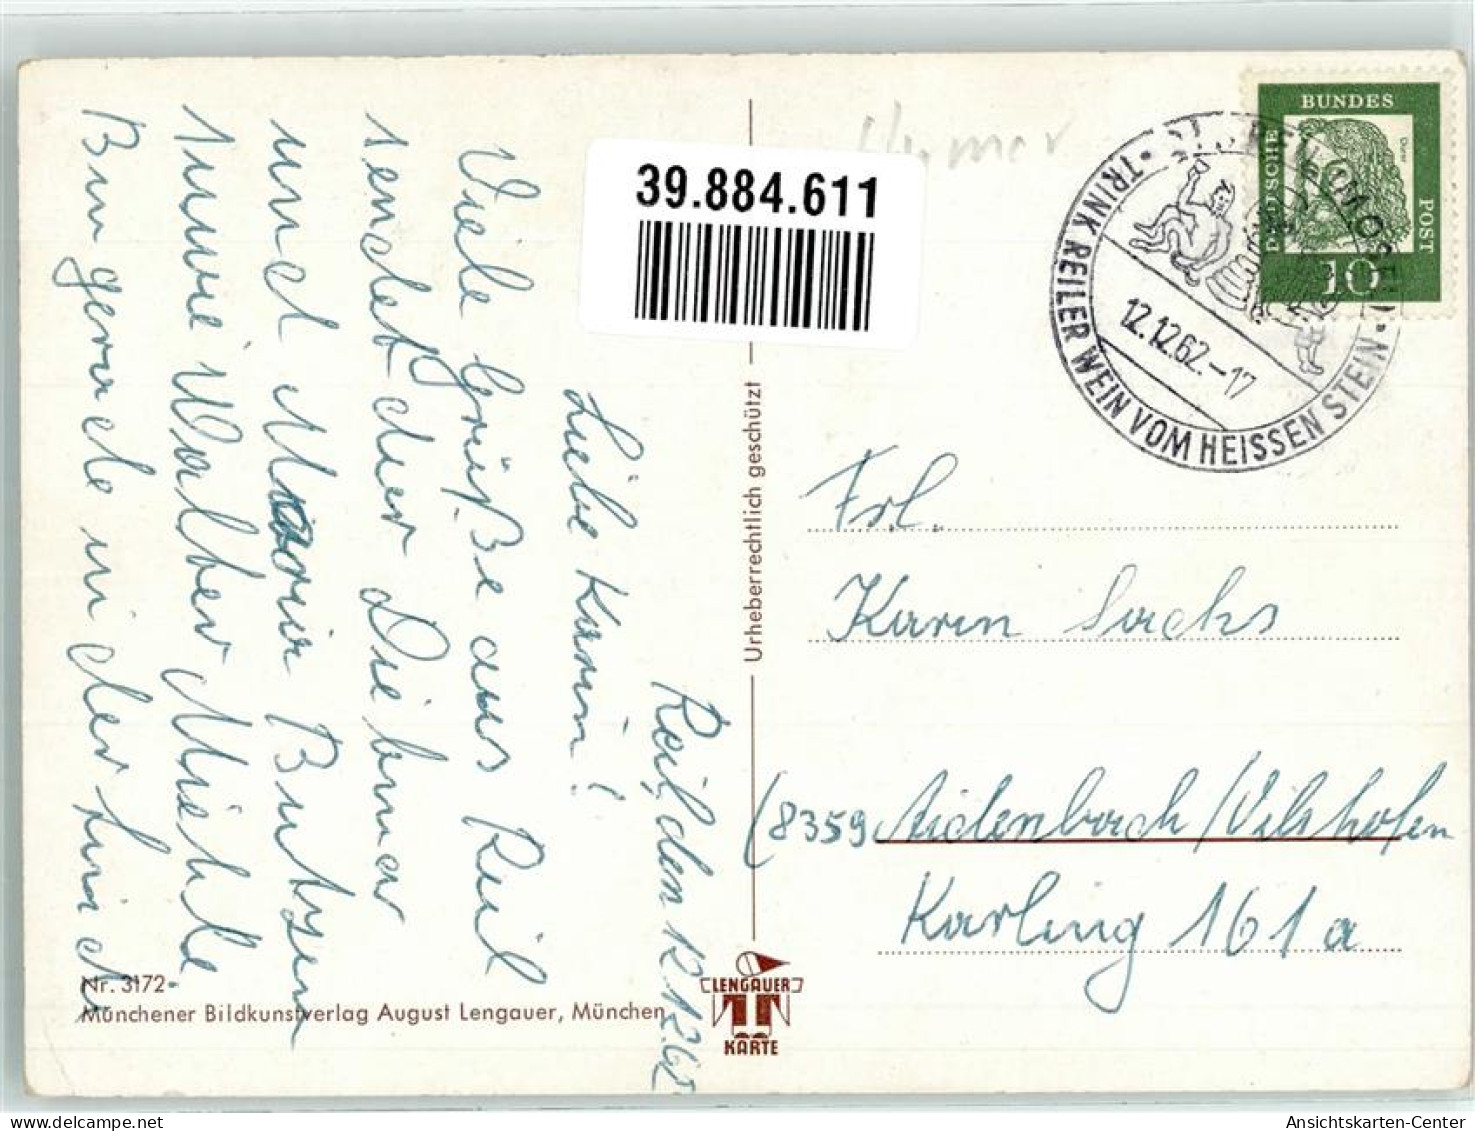 39.884.611
Reil, den 12.12.62
Liebe Karin!
Viele Grüße aus Reil
sendet dir
und Butzem
Walter Miehle
Bin gerade in der
Nr. 3172
Münchener Bildkunstverlag August Lengauer, München
Urheberrechtlich geschützt
LENGAUER
KARTE
DEUTSCHE
BUNDES
POST
10
TRINK REILER WEIN VOM HEISSEN STEIN
12.12.62.-17
Frl.
Karin Sachs
(8359 Aidenbach/Vilshofen
Karling 161a
Ansichtskarten-Center
www.delcampe.net